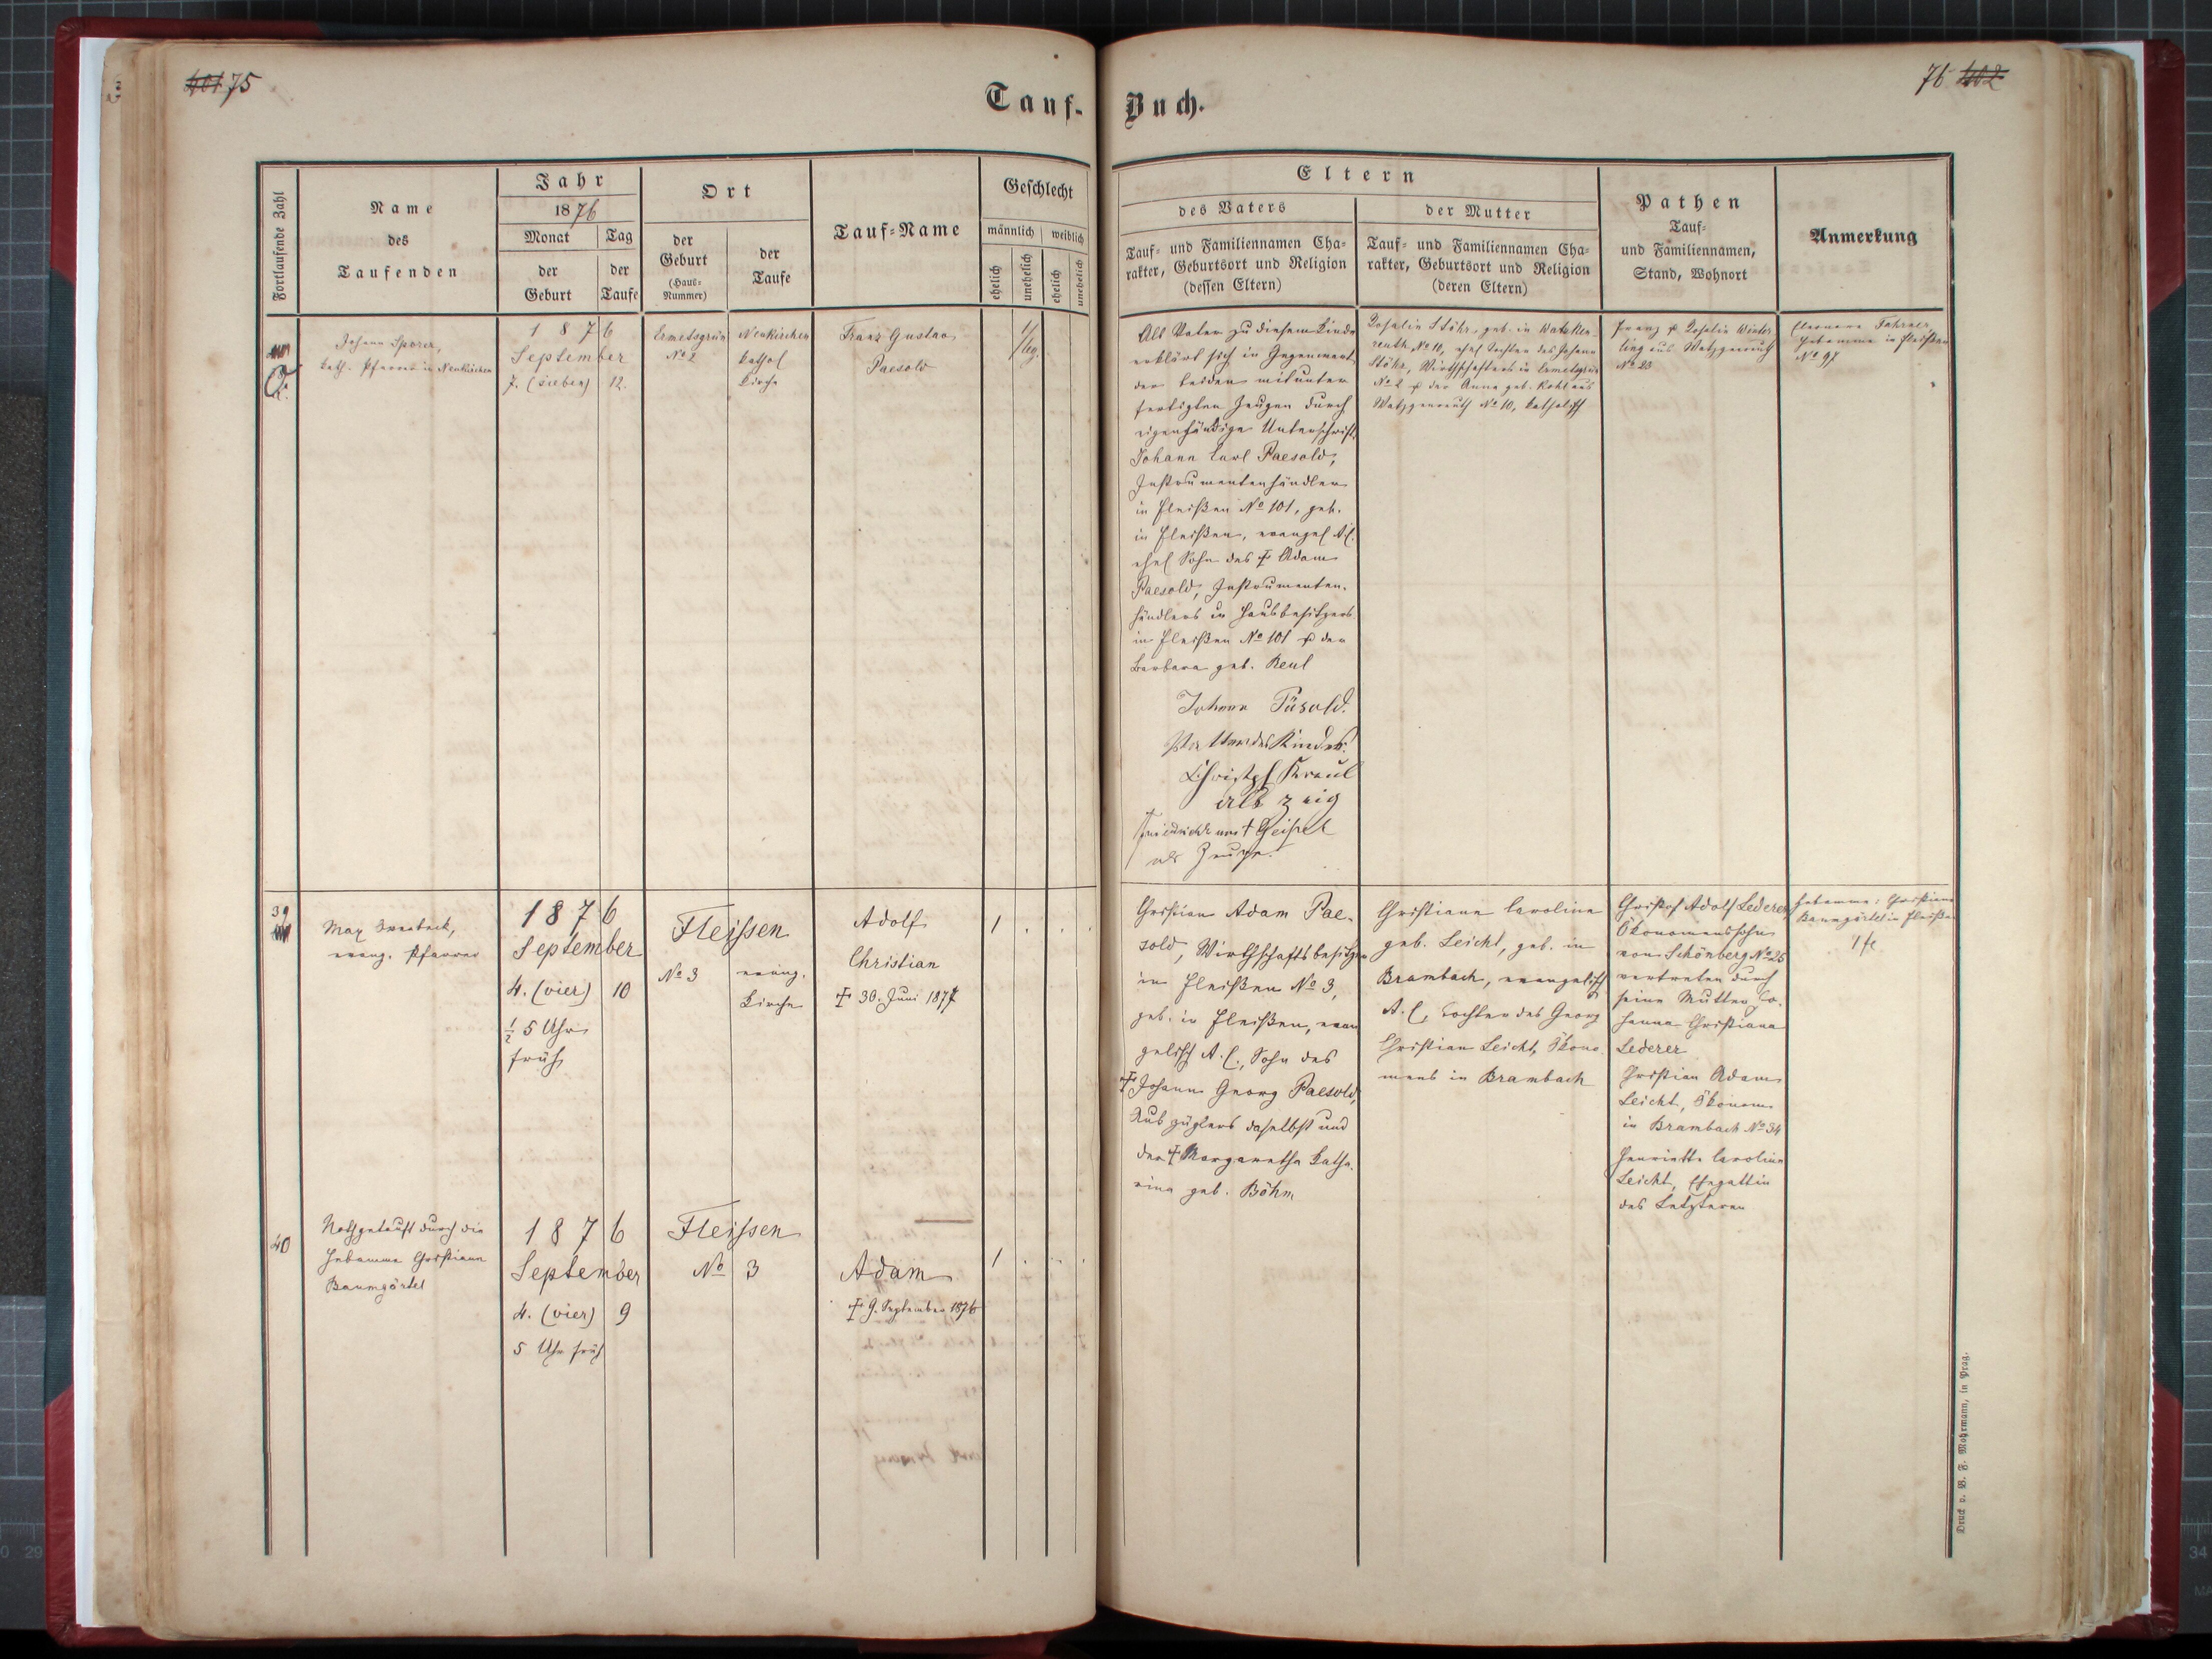 401 75
Tauf-
Fortlaufende Zahl
Name
des
Taufenden
Jahr
1876
Monat
Tag
der
Geburt
der
Taufe
Ort
der
Geburt
(Haus-
Nummer)
der
Taufe
Tauf-Name
Geschlecht
männlich
weiblich
ehelich
unehelich
ehelich
unehelich
Johann Sporer,
kath. Pfarrer in Neukirchen
1876
September
7. (sieben) 12.
Ermetsgrün
No 2
Neukirchen
kathol
Kirche
Franz Gustav
Paesold
1/
leg.
39
Max
evang. Pfarrer
1876
September
4. (vier) 10
½ 5 Uhr
früh
Fleissen
No 3
evang.
Kirche
Adolf
Christian
† 30. Juni 1877
1
40
Nothgetauft durch die
Hebamme Christiane
Baumgärtel
1876
September
4. (vier) 9
5 Uhr früh
Fleissen
No 3
Adam
† 9. September 1876
1
76 402
Buch.
Eltern
des Vaters
Tauf- und Familiennamen Cha-
rakter, Geburtsort und Religion
(dessen Eltern)
der Mutter
Tauf- und Familiennamen Cha-
rakter, Geburtsort und Religion
(deren Eltern)
Pathen
Tauf-
und Familiennamen,
Stand, Wohnort
Anmerkung
Als Vater zu diesem Kinde
erklärt sich in Gegenwart
der beiden mitunter
fertigten Zeugen durch
eigenhändige Unterschrift,
Johann Carl Paesold,
Instrumentenhändler
in Fleißen No 101, geb.
in Fleißen, evangel A.C.
ehel Sohn des † Adam
Paesold, Instrumenten-
händlers u Hausbesitzers
in Fleißen No 101 u der
Barbara geb. Keul
Johann Päsold.
Vater des Kindes.
Christoph Kraul
als zeig
Geipel
als Zeuge.
Rosalia Stöhr, geb. in Watzken-
reuth No 10, ehel Tochter des Johann
Stöhr, Wirthschafters in Ermetsgrün
No 2 u der Anna geb. Kohl aus
Watzgenreuth No 10, katholisch
Franz u Rosalia Winter
ling aus Watzgenreuth
No 23
Eleonora Fahrner,
Hebamme in Fleißen
No 97
Christian Adam Pae-
sold, Wirthschaftsbesitzer
in Fleißen No 3,
geb. in Fleißen, evan
gelisch A.C., Sohn des
† Johann Georg Paesold,
Auszüglers daselbst und
der † Margaretha Katha-
rina geb. Böhm
Christiane Caroline
geb. Leicht, geb. in
Brambach, evangelisch
A.C., Tochter des Georg
Christian Leicht, Ökono-
mens in Brambach
Christof Adolf Lederer
Ökonomenssohn
von Schönberg No 25
vertreten durch
seine Mutter Jo-
hanna Christiana
Lederer
Christian Adam
Leicht, Ökonom
in Brambach No 34
Henriette Caroline
Leicht, Ehegattin
des Letzteren
Hebamme: Christiane
Baumgärtel in Fleißen
Druck v. B. F. Mohrmann, in Prag.